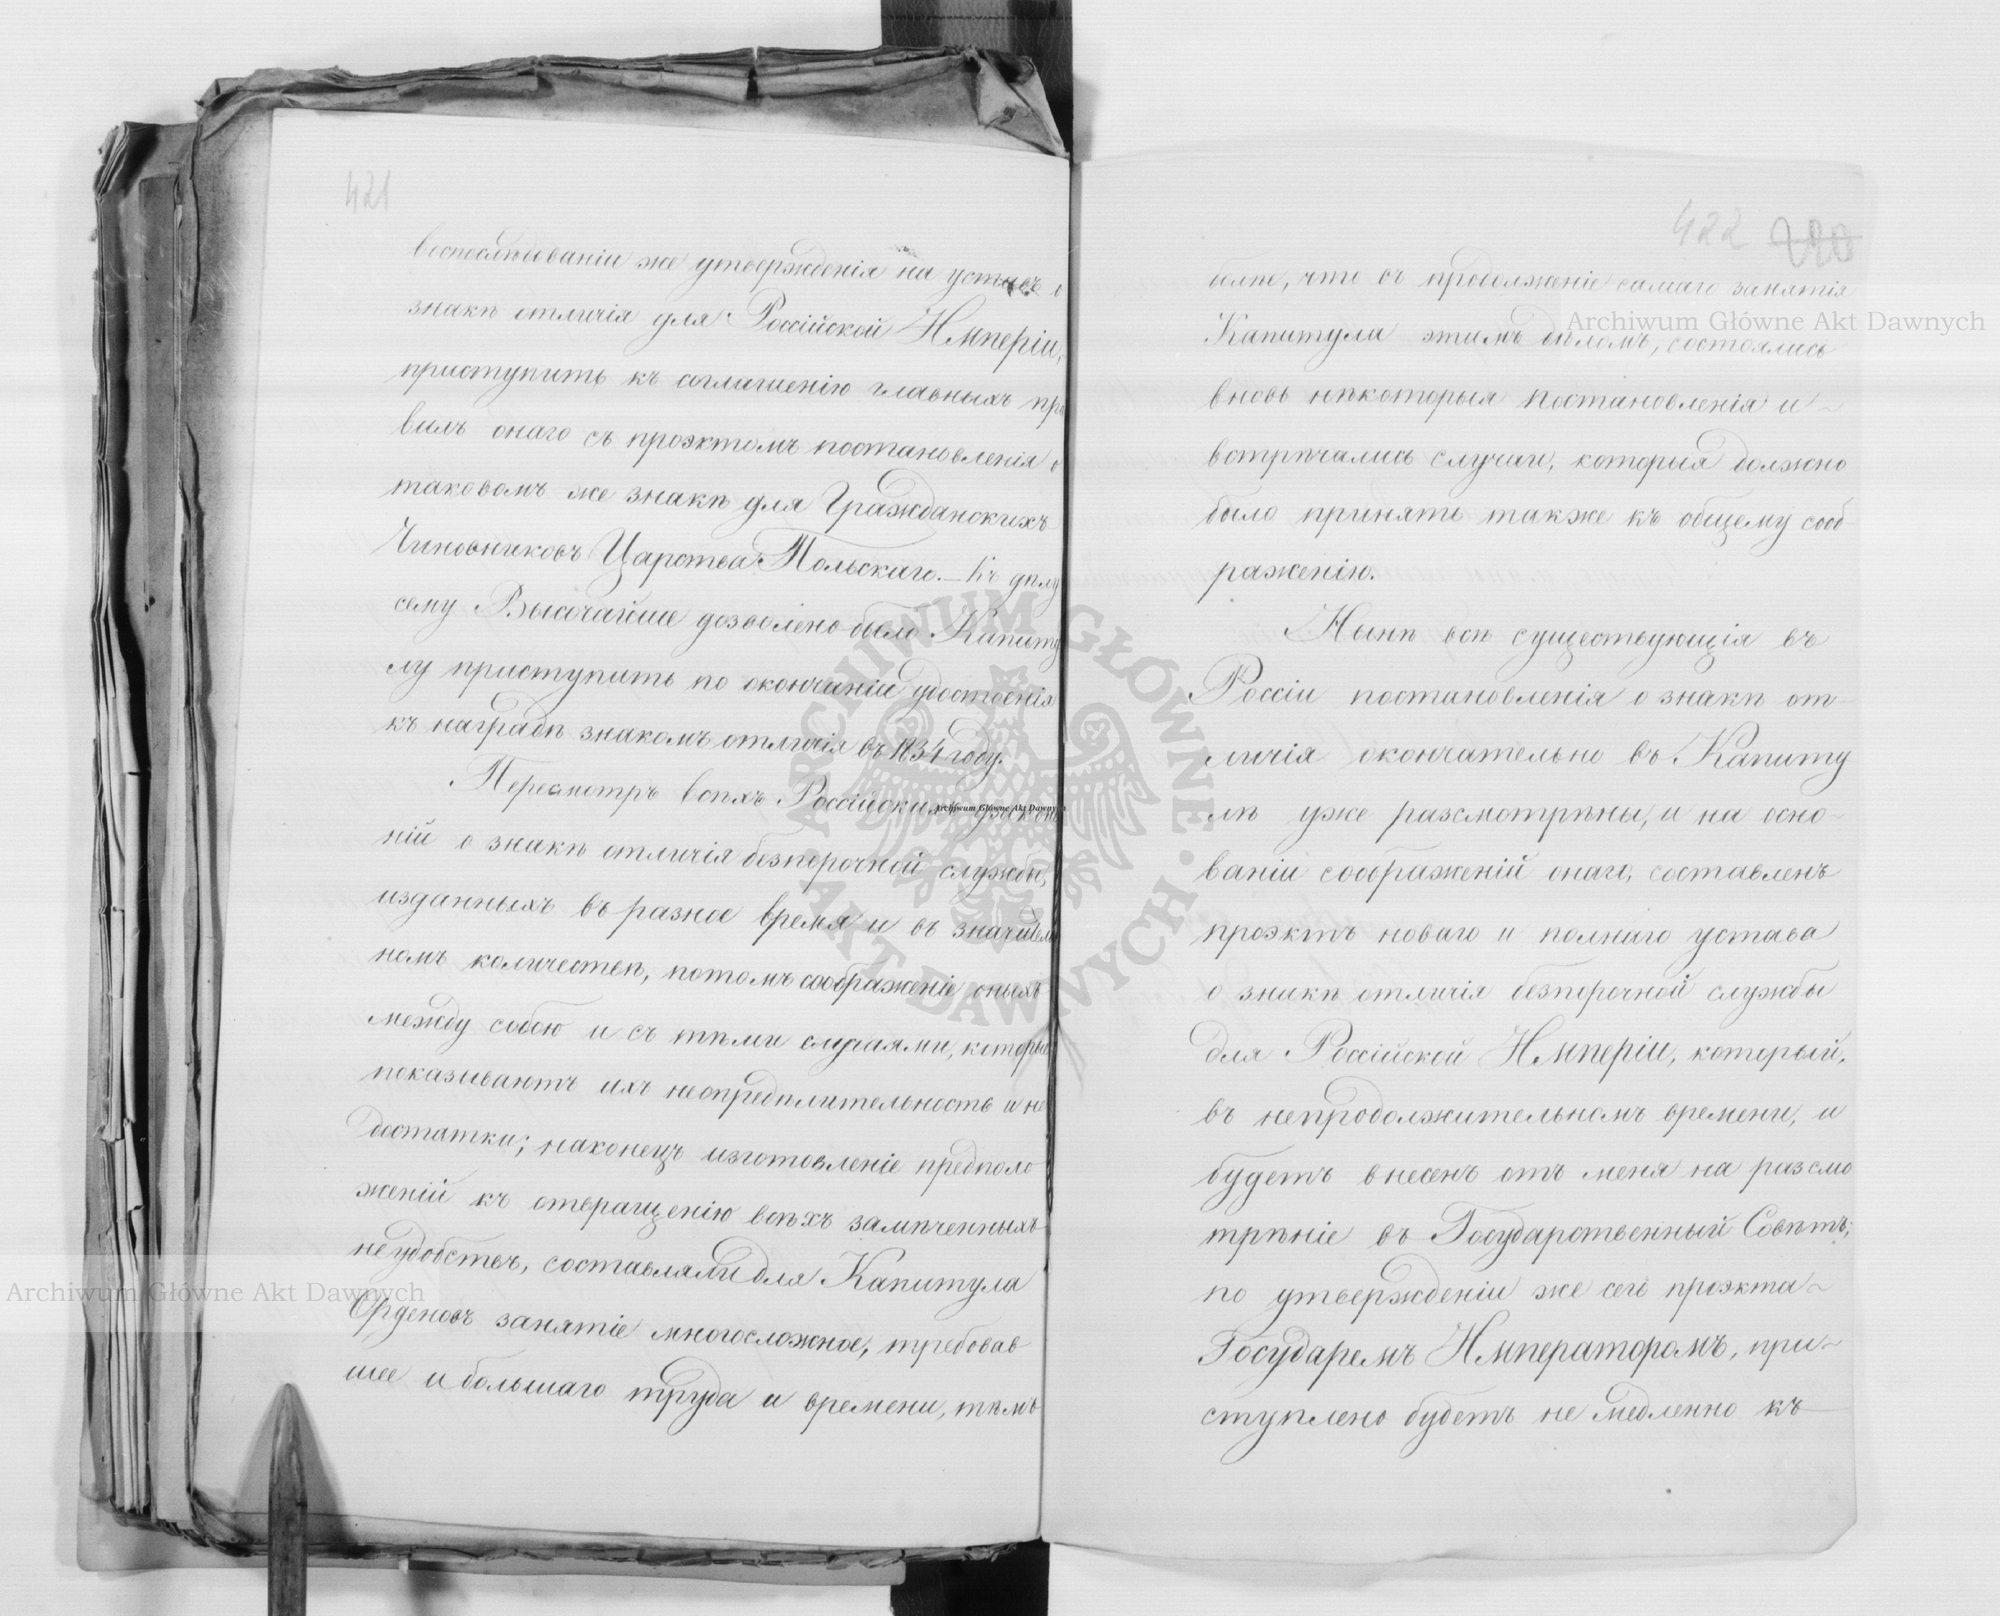 421
воспослѣдованіи же утвержденія на уставъ о
знакѣ отличія для Россійской Имперіи,
приступить къ соглашенію главныхъ пра
вилъ онаго съ проэктомъ постановленія о
таковомъ же знакѣ для Гражданскихъ
Чиновниковъ Царства Польскаго. — Къ дѣлу
сему Высочайше дозволено было Капиту
лу приступить по окончаніи удостоенія
къ наградѣ знакомъ отличія въ 1834 году.
Пересмотръ всѣхъ Россійскихъ
ній о знакѣ отличія безпорочной службы,
изданныхъ въ разное время и въ значитель
номъ количествѣ, потомъ соображеніе оныхъ
между собою и съ тѣми случаями, которые
показываютъ ихъ неопредѣлительность и не
достатки; наконецъ изготовленіе предполо
женій къ отвращенію всѣхъ замѣченныхъ
неудобствъ, составляли для Капитула
Орденовъ занятіе многосложное, требовав
шее и большаго труда и времени, тѣмъ
422 220
болѣе, что въ продолженіе самаго занятія
Капитула этимъ дѣломъ, состоялись
вновь нѣкоторыя постановленія и
встрѣчались случаи, которыя должно
было принять также къ общему сооб
раженію.
Нынѣ всѣ существующія въ
Россіи постановленія о знакѣ от
личія окончательно въ Капиту
лѣ уже разсмотрѣны, и на осно-
ваніи соображеній онаго, составленъ
проэктъ новаго и полнаго устава
о знакѣ отличія безпорочной службы
для Россійской Имперіи, который,
въ непродолжительномъ времени, и
будетъ внесенъ отъ меня на разсмо
трѣніе въ Государственный Совѣтъ;
по утвержденіи же сего проэкта
Государемъ Императоромъ, при-
ступлено будетъ не медленно къ
Archiwum Główne Akt Dawnych
Archiwum Główne Akt Dawnych
Archiwum Główne Akt Dawnych
ARCHIWUM GŁÓWNE · AKT DAWNYCH ·